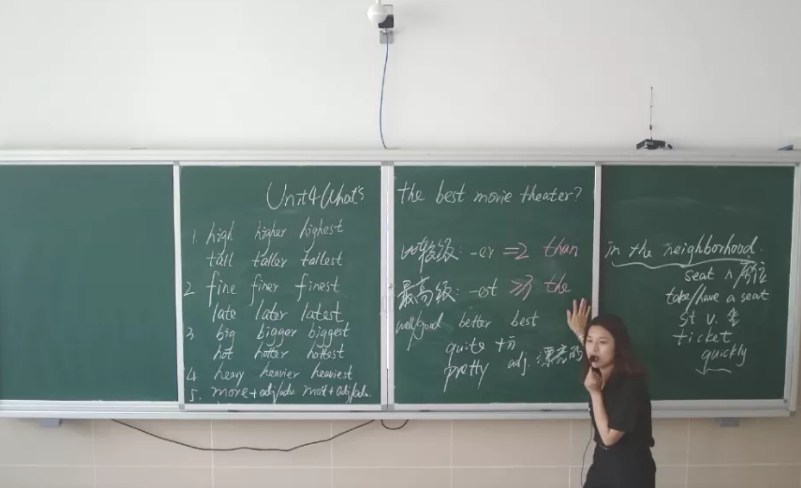 Unit4 What's the best movie theater?
1. high higher highest
tall taller tallest
2. fine finer finest
late later latest
3. big bigger biggest
hot hotter hottest
4. heavy heavier heaviest
5. more+adj/adv. most+adj/adv.
比较级: -er =2 than
最高级: -est ≥3 the
well/good better best
quite 十分
pretty adj. 漂亮的
in the neighborhood.
seat n 座位
take/have a seat
sit v. 坐
ticket
quickly